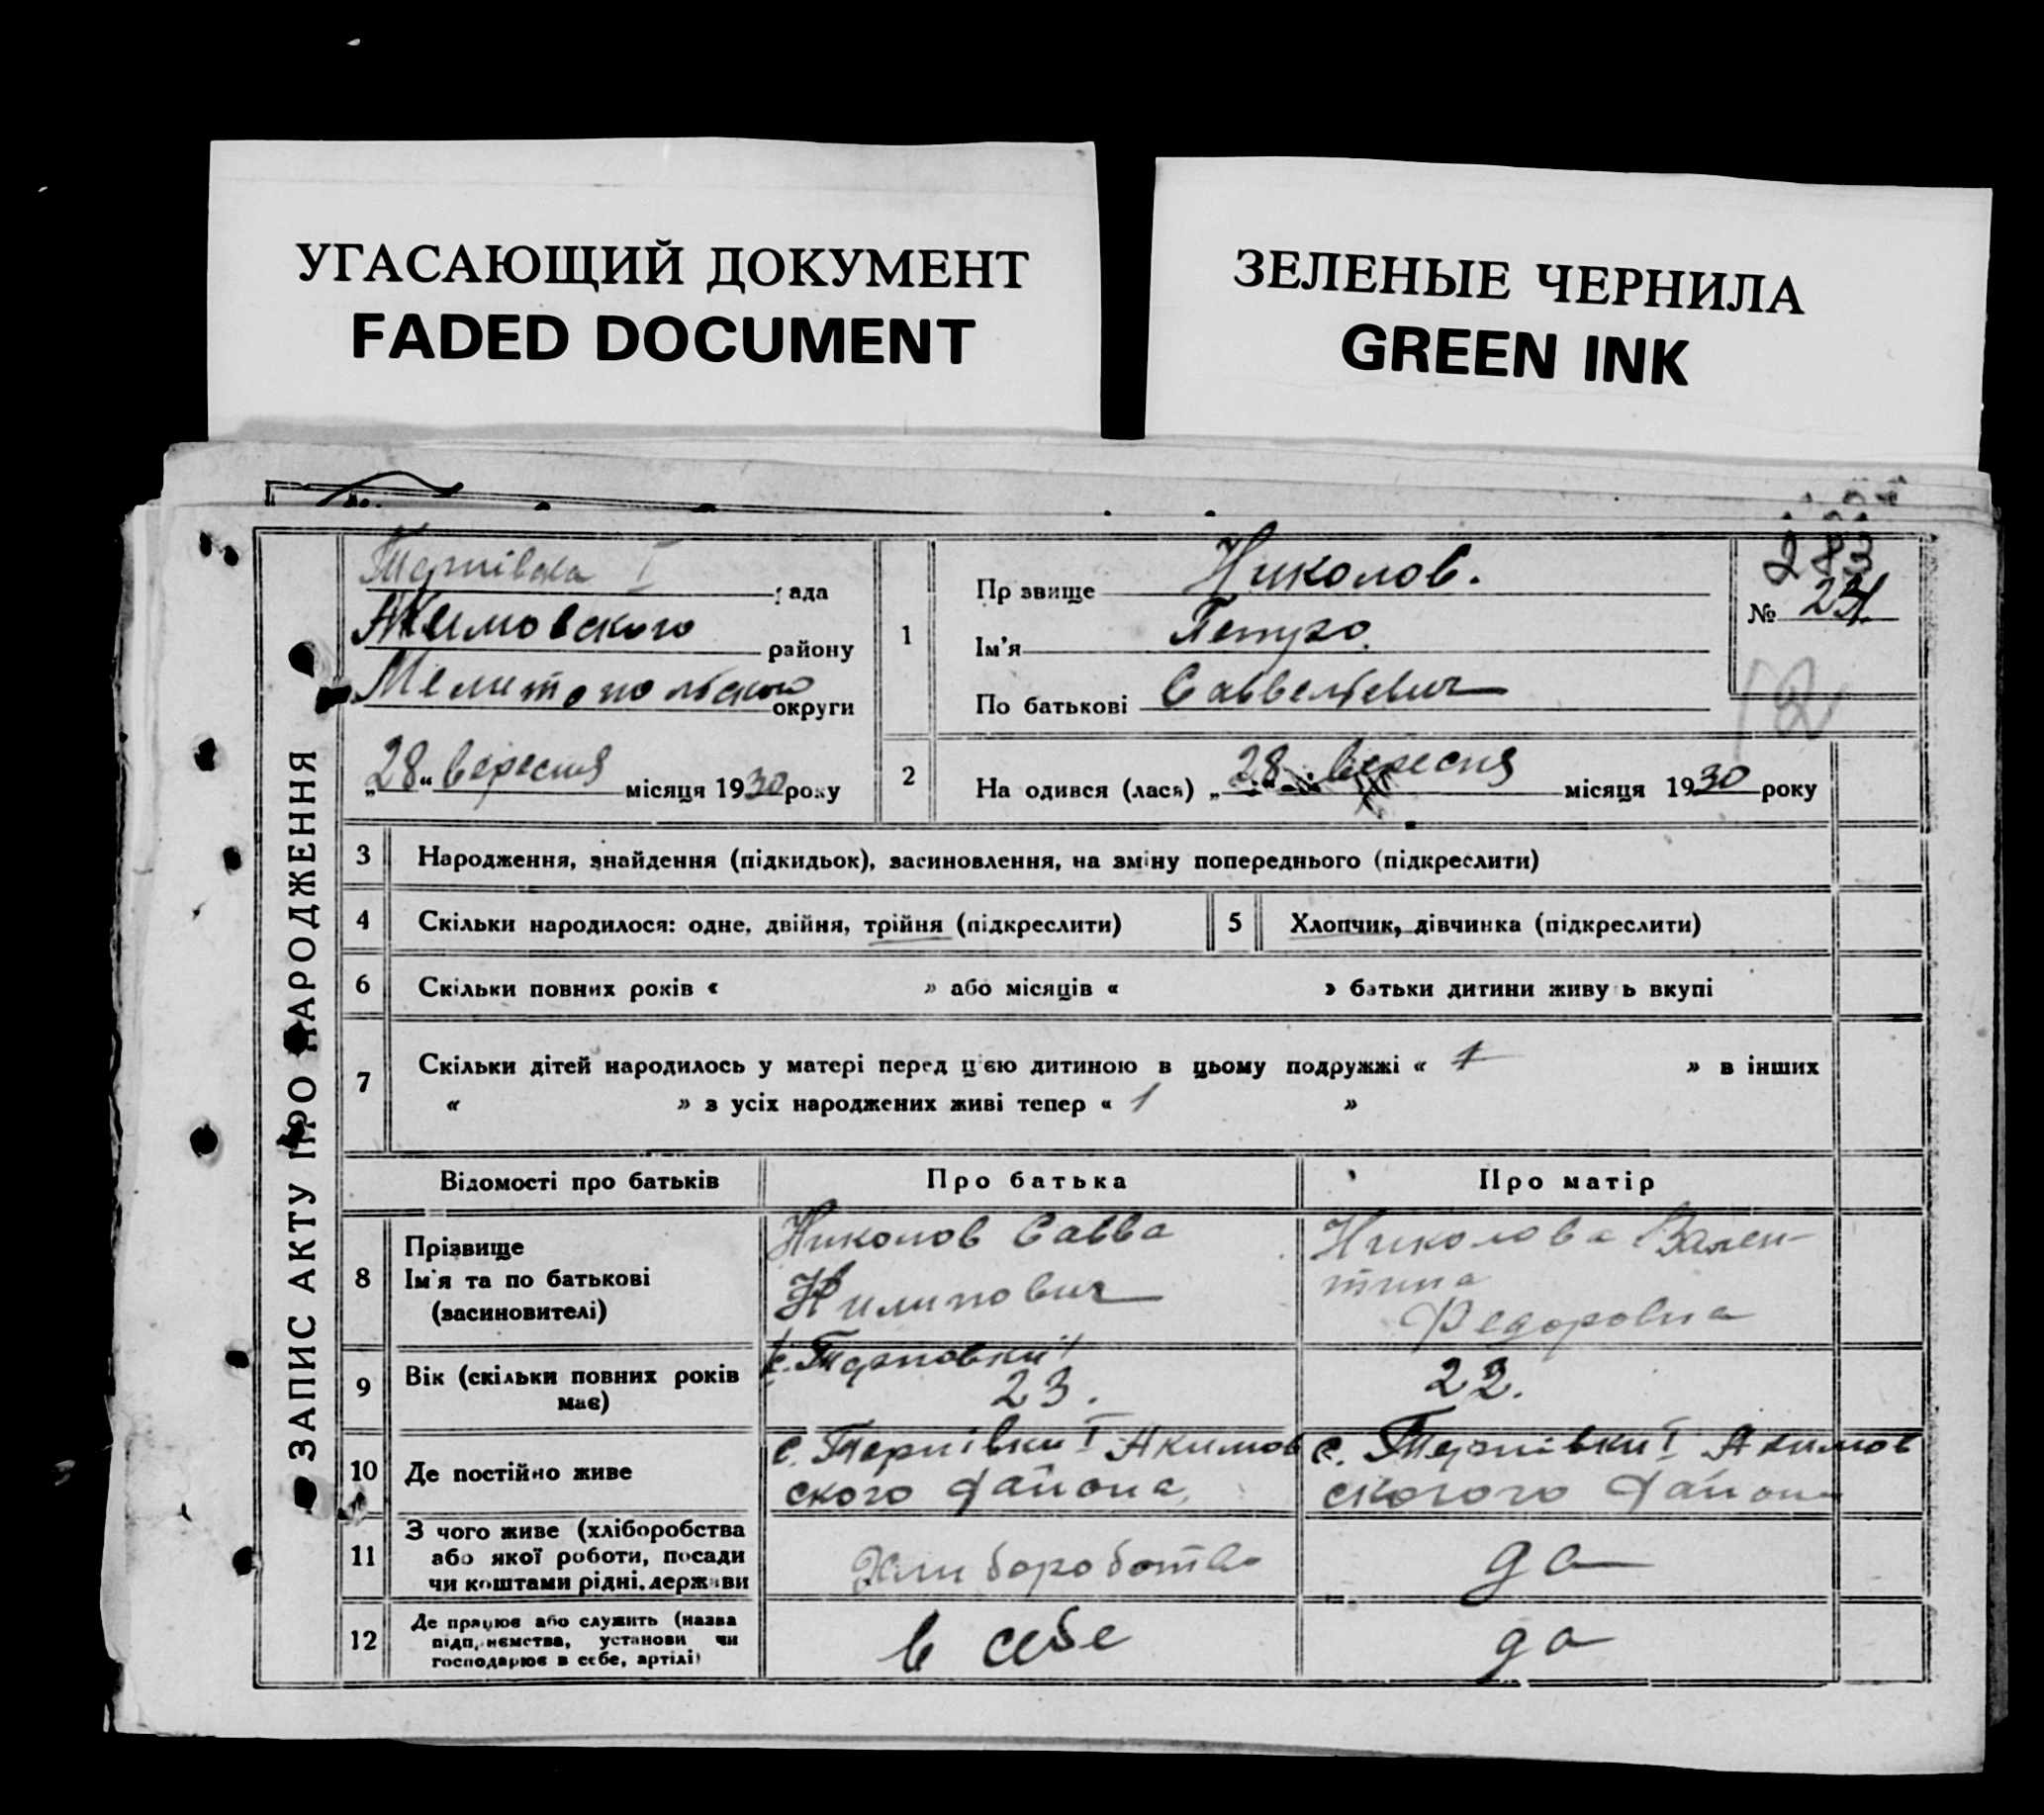 УГАСАЮЩИЙ ДОКУМЕНТ
FADED DOCUMENT
ЗЕЛЕНЫЕ ЧЕРНИЛА
GREEN INK
ЗАПИС АКТУ ПРО НАРОДЖЕННЯ
Тернівська I рада
Акимовского району
Мелитопольского округи
„28“ вересня місяця 1930 року
1
Прзвище Николов.
Ім'я Петро.
По батькові Саввельевич
283
№ 24.
2
На одився (лася) „28“ вересня місяця 1930 року
3 Народження, знайдення (підкидьок), засиновлення, на зміну попереднього (підкреслити)
4 Скільки народилося: одне, двійня, трійня (підкреслити)
5 Хлопчик, дівчинка (підкреслити)
6 Скільки повних років « » або місяців « » батьки дитини живу ь вкупі
7 Скільки дітей народилось у матері перед ц'єю дитиною в цьому подружжі « 1 » в інших
« » з усіх народжених живі тепер « 1 »
Відомості про батьків Про батька Про матір
8 Прізвище
Ім'я та по батькові
(засиновителі)
Николов Савва
Филипович
Николова Вален-
тина
Федоровна
9 Вік (скільки повних років
має)
с. Терновки
23.
22.
10 Де постійно живе
с. Тернівки I Акимов
ского района
с. Тернівки I Акимов
скогого района
11 З чого живе (хліборобства
або якої роботи, посади
чи коштами рідні, держави
Хлиборобство
да
12 Де працює або служить (назва
підприємства, установи чи
господарює в себе, артілі)
в себе
да